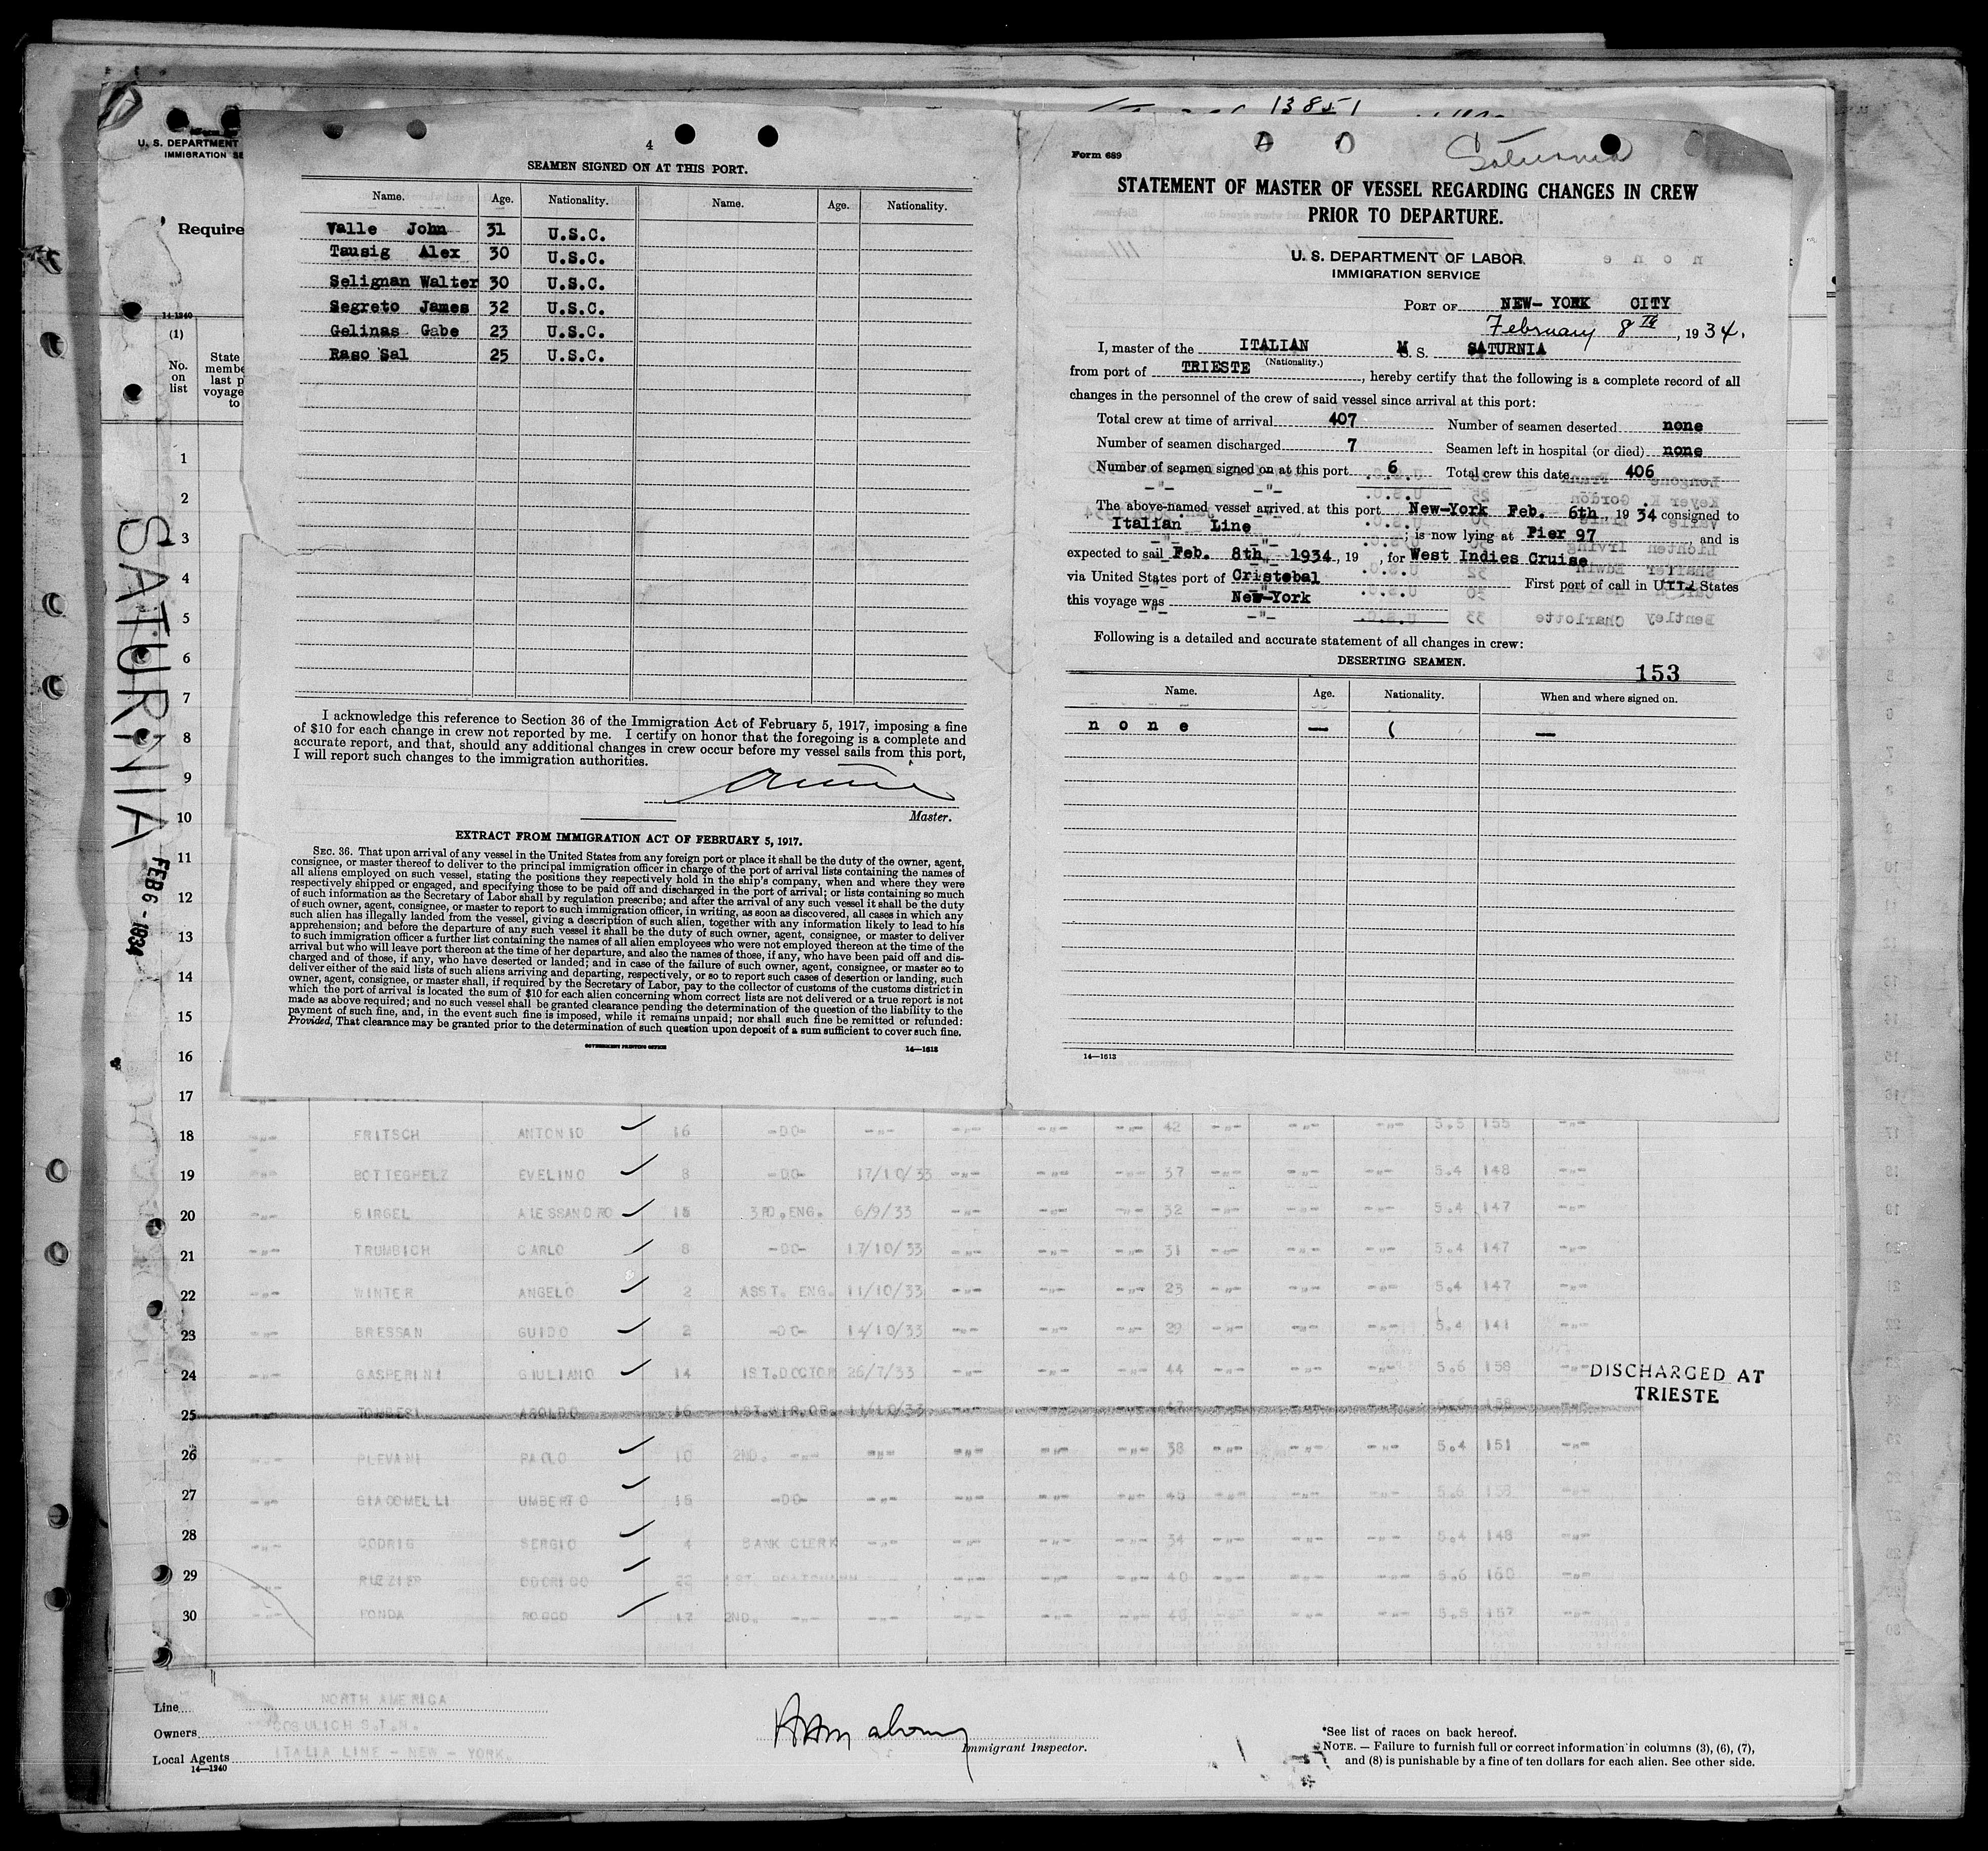 13851
U. S. DEPARTMENT
IMMIGRATION SE
Require
14-1240
(1)
No. on list
State
membe
last p
voyage
to
SATURNIA
FEB 6 - 1934
4
SEAMEN SIGNED ON AT THIS PORT.
Name. Age. Nationality. Name. Age. Nationality.
Valle John 31 U.S.C.
Tausig Alex 30 U.S.C.
Selignan Walter 30 U.S.C.
Segreto James 32 U.S.C.
Gelinas Gabe 23 U.S.C.
Raso Sal 25 U.S.C.
I acknowledge this reference to Section 36 of the Immigration Act of February 5, 1917, imposing a fine
of $10 for each change in crew not reported by me. I certify on honor that the foregoing is a complete and
accurate report, and that, should any additional changes in crew occur before my vessel sails from this port,
I will report such changes to the immigration authorities.
Master.
EXTRACT FROM IMMIGRATION ACT OF FEBRUARY 5, 1917.
SEC. 36. That upon arrival of any vessel in the United States from any foreign port or place it shall be the duty of the owner, agent,
consignee, or master thereof to deliver to the principal immigration officer in charge of the port of arrival lists containing the names of
all aliens employed on such vessel, stating the positions they respectively hold in the ship's company, when and where they were
respectively shipped or engaged, and specifying those to be paid off and discharged in the port of arrival; or lists containing so much
of such information as the Secretary of Labor shall by regulation prescribe; and after the arrival of any such vessel it shall be the duty
of such owner, agent, consignee, or master to report to such immigration officer, in writing, as soon as discovered, all cases in which any
such alien has illegally landed from the vessel, giving a description of such alien, together with any information likely to lead to his
apprehension; and before the departure of any such vessel it shall be the duty of such owner, agent, consignee, or master to deliver
to such immigration officer a further list containing the names of all alien employees who were not employed thereon at the time of the
arrival but who will leave port thereon at the time of her departure, and also the names of those, if any, who have been paid off and dis-
charged and of those, if any, who have deserted or landed; and in case of the failure of such owner, agent, consignee, or master so to
deliver either of the said lists of such aliens arriving and departing, respectively, or so to report such cases of desertion or landing, such
owner, agent, consignee, or master shall, if required by the Secretary of Labor, pay to the collector of customs of the customs district in
which the port of arrival is located the sum of $10 for each alien concerning whom correct lists are not delivered or a true report is not
made as above required; and no such vessel shall be granted clearance pending the determination of the question of the liability to the
payment of such fine, and, in the event such fine is imposed, while it remains unpaid; nor shall such fine be remitted or refunded:
Provided, That clearance may be granted prior to the determination of such question upon deposit of a sum sufficient to cover such fine.
GOVERNMENT PRINTING OFFICE 14—1613
Form 689
Saturnia
STATEMENT OF MASTER OF VESSEL REGARDING CHANGES IN CREW
PRIOR TO DEPARTURE.
U. S. DEPARTMENT OF LABOR
IMMIGRATION SERVICE
PORT OF NEW-YORK CITY
February 8th, 1934.
I, master of the ITALIAN M. S. SATURNIA
(Nationality.)
from port of TRIESTE, hereby certify that the following is a complete record of all
changes in the personnel of the crew of said vessel since arrival at this port:
Total crew at time of arrival 407 Number of seamen deserted none
Number of seamen discharged 7 Seamen left in hospital (or died) none
Number of seamen signed on at this port 6 Total crew this date 406
The above-named vessel arrived at this port New-York Feb. 6th, 1934 consigned to
Italian Line; is now lying at Pier 97, and is
expected to sail Feb. 8th 1934, 19 , for West Indies Cruise
via United States port of Cristobal First port of call in United States
this voyage was New-York
Following is a detailed and accurate statement of all changes in crew:
DESERTING SEAMEN.
153
Name. Age. Nationality. When and where signed on.
none — ( —
14—1613
1
2
3
4
5
6
7
8
9
10
11
12
13
14
15
16
17
18 -"- FRITSCH ANTONIO 16 -DO- -"- -"- -"- -"- 42 -"- -"- -"- 5.5 155 -"-
19 -"- BOTTEGHELZ EVELINO 8 -DO- 17/10/33 -"- -"- -"- 37 -"- -"- -"- 5.4 148 -"-
20 -"- BIRGEL ALESSANDRO 15 3RD.ENG. 6/9/33 -"- -"- -"- 32 -"- -"- -"- 5.4 147 -"-
21 -"- TRUMBICH CARLO 8 -DO- 17/10/33 -"- -"- -"- 31 -"- -"- -"- 5.4 147 -"-
22 -"- WINTER ANGELO 2 ASST. ENG. 11/10/33 -"- -"- -"- 23 -"- -"- -"- 5.4 147 -"-
23 -"- BRESSAN GUIDO 2 -DO- 14/10/33 -"- -"- -"- 29 -"- -"- -"- 5.4 141 -"-
24 -"- GASPERINI GIULIANO 14 1ST.DOCTOR 26/7/33 -"- -"- -"- 44 -"- -"- -"- 5.6 158 -"- DISCHARGED AT
TRIESTE
25 TOMBESI 16 11/10/33 47
26 -"- PLEVANI PAOLO 10 2ND. -"- -"- -"- -"- -"- 38 -"- -"- -"- 5.4 151 -"-
27 -"- GIACOMELLI UMBERTO 15 -DO- -"- -"- -"- -"- 45 -"- -"- -"- 5.6 158 -"-
28 -"- CODRIG SERGIO 4 BANK CLERK -"- -"- -"- -"- 34 -"- -"- -"- 5.4 148 -"-
29 -"- RUZZIER 22 1ST. -"- -"- -"- 40 -"- -"- -"- 5.6 160 -"-
30 -"- FONDA ROCCO 17 2ND. -"- -"- -"- -"- -"- 46 -"- -"- -"- 5.5 157 -"-
Line NORTH AMERICA
Owners COSULICH S.T.N.
Local Agents ITALIA LINE - NEW - YORK.
14—1240
Immigrant Inspector.
*See list of races on back hereof.
NOTE. — Failure to furnish full or correct information in columns (3), (6), (7),
and (8) is punishable by a fine of ten dollars for each alien. See other side.